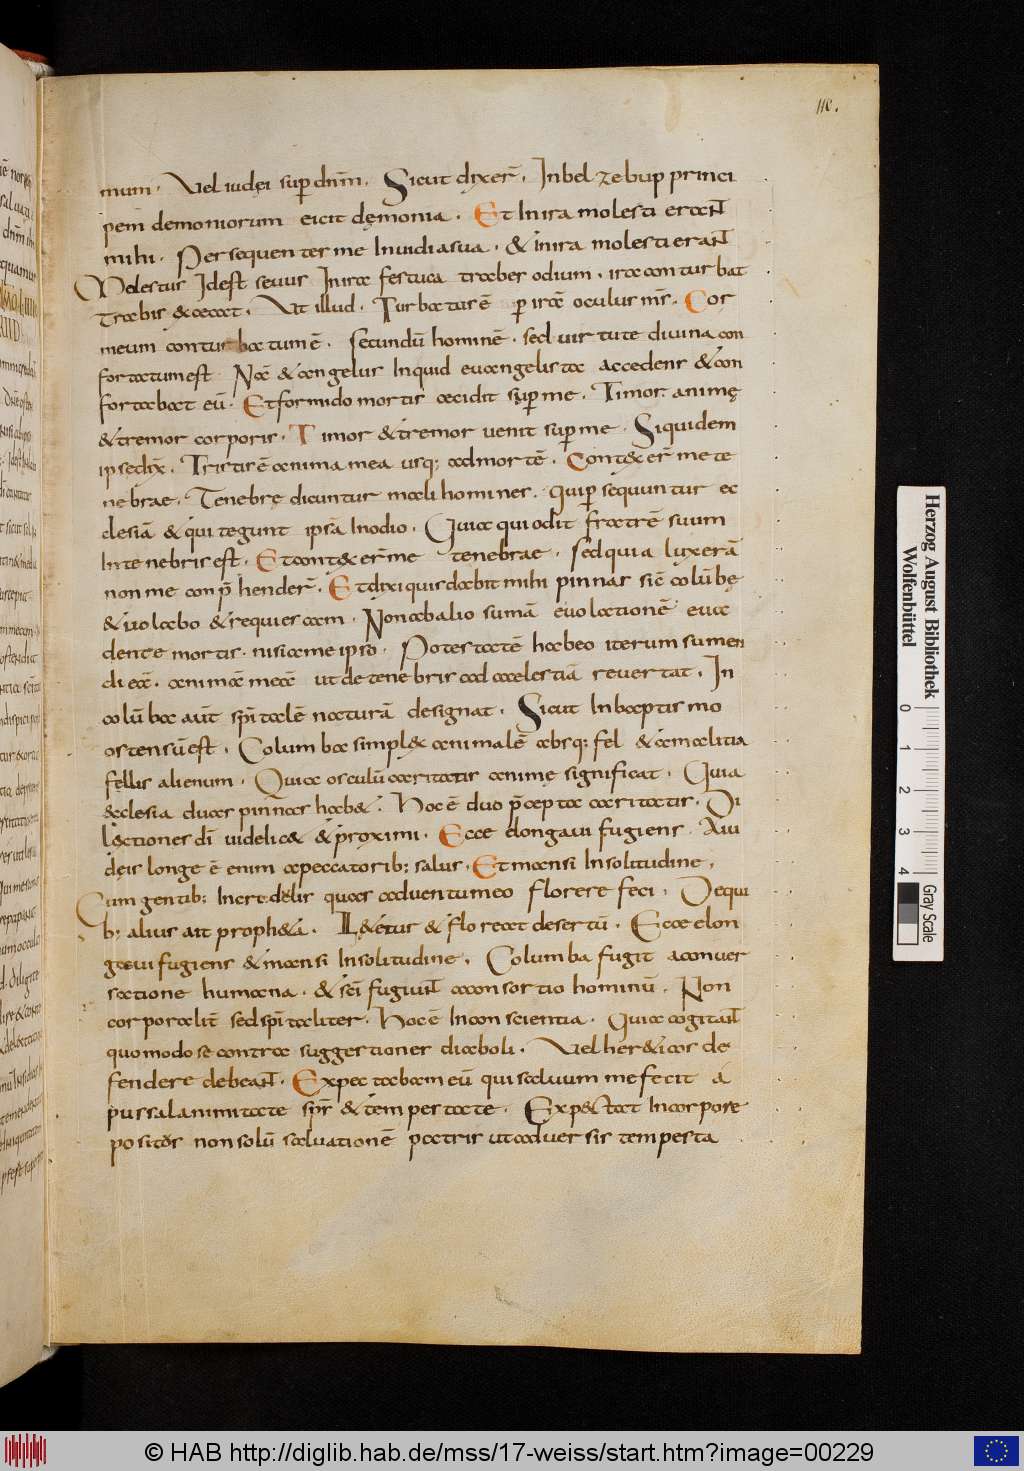 110.
mum. Vel iudęi sup dnm̄. Sicut dixer̄. In belzebup princi
pem̄ demoniorum eicit dęmonia. Et In ira molesti erant
mihi. Persequenter me Inuidia sua. & in ira molesti erant
Molestus Idest sevus In ira festuca trabes odium. ira conturbat
trabis & cęcat. Ut illud. Turbatus ē p irā oculus mr̄. Cor
meum conturbatum ē. secundū hominē. sed uirtute diuina con
fortatum est. Nā & angelus Inquid euangelista accedens & con
fortabat eū. Et formido mortis cecidit sup me. Timor animę
& tremor corporis. Timor & tremor uenit sup me. Siquidem
ipse dix̄. Tristis ē anima mea usq; ad mortē. Cont&er̄ me te
nebrae. Tenebrę dicuntur mali homines. qui p sequuntur ec
clesiā & qui tegunt ipsā In odio. Quia qui odit fratrē suum
In tenebris est. Et cont&er̄ me tenebrae. sed quia lux erā
non me conp̄henderr̄. Et dixi quis dabit mihi pinnas sic̄ colūbę
& uolabo & requiescam. Non ab alio sumā euolationē eua
dente mortis. nisi a me ipso. Potestatē habeo iterum sumen
di eā. animā meā ut de tenebris ad caelestiā revertat. In
colūba aut̄ spi̅talē naturā designat. Sicut In baptismo
ostensū est. Columba simpl& animal ē absq; fel & a malitia
fellis alienum. Quia osculū caritatis animę significat. Quia
&clesia duas pinnas hab&. Hoc ē duo p̄cepta caritatis. Di
l&ctiones dī uidelic& & proximi. Ecce elongaui fugiens. A iu
dęis longe ē enim a peccatorib; salus. Et mansi In solitudine.
Cum gentib; Incredulis quas aduentu meo florere feci. De qui
b; alius ait proph&a. L&etur & floreat desertū. Ecce elon
gaui fugiens & mansi In solitudine. Columba fugit a conuer
satione humana. & sc̄i fugiunt a consortio hominū. Non
corporalit̄ sed spi̅taliter. Hoc ē In conscientia. Quia cogitant
quomodo se contra suggestiones diaboli. Vel her&icos de
fendere debeant. Expectabam eū qui saluum me fecit a
pussalanimitate spr̄ & tempestate. Exp&ctat In corpore
positos non solū saluationē patris ut aduersis tempesta
Herzog August Bibliothek
Wolfenbüttel
0 1 2 3 4
Gray Scale
© HAB http://diglib.hab.de/mss/17-weiss/start.htm?image=00229